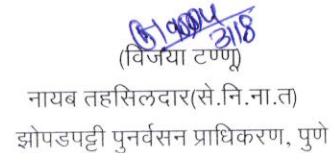 3/18
(विजया टण्णू)
नायब तहसिलदार(से.नि.ना.त)
झोपडपट्टी पुनर्वसन प्राधिकरण, पुणे